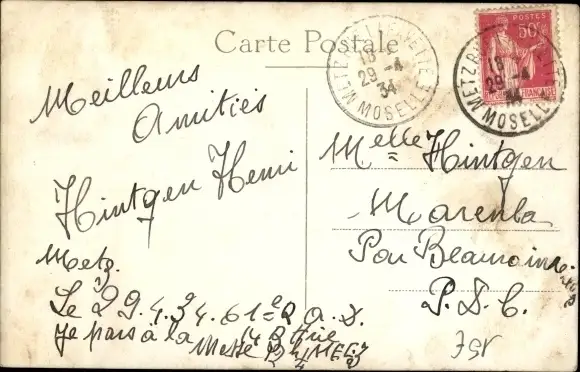 Carte Postale
Meilleurs
Amitiés
Hintgen Henri
Metz.
Le 29.4.34. 61e R A. D.
Je pars à la
Melle Hintgen
Marenla
Par Beaurain
P. D. C.
METZ R. LAFAYETTE
18
29 -4
34
MOSELLE
METZ R.
18
29 -4
34
MOSELLE
POSTES
50c
751